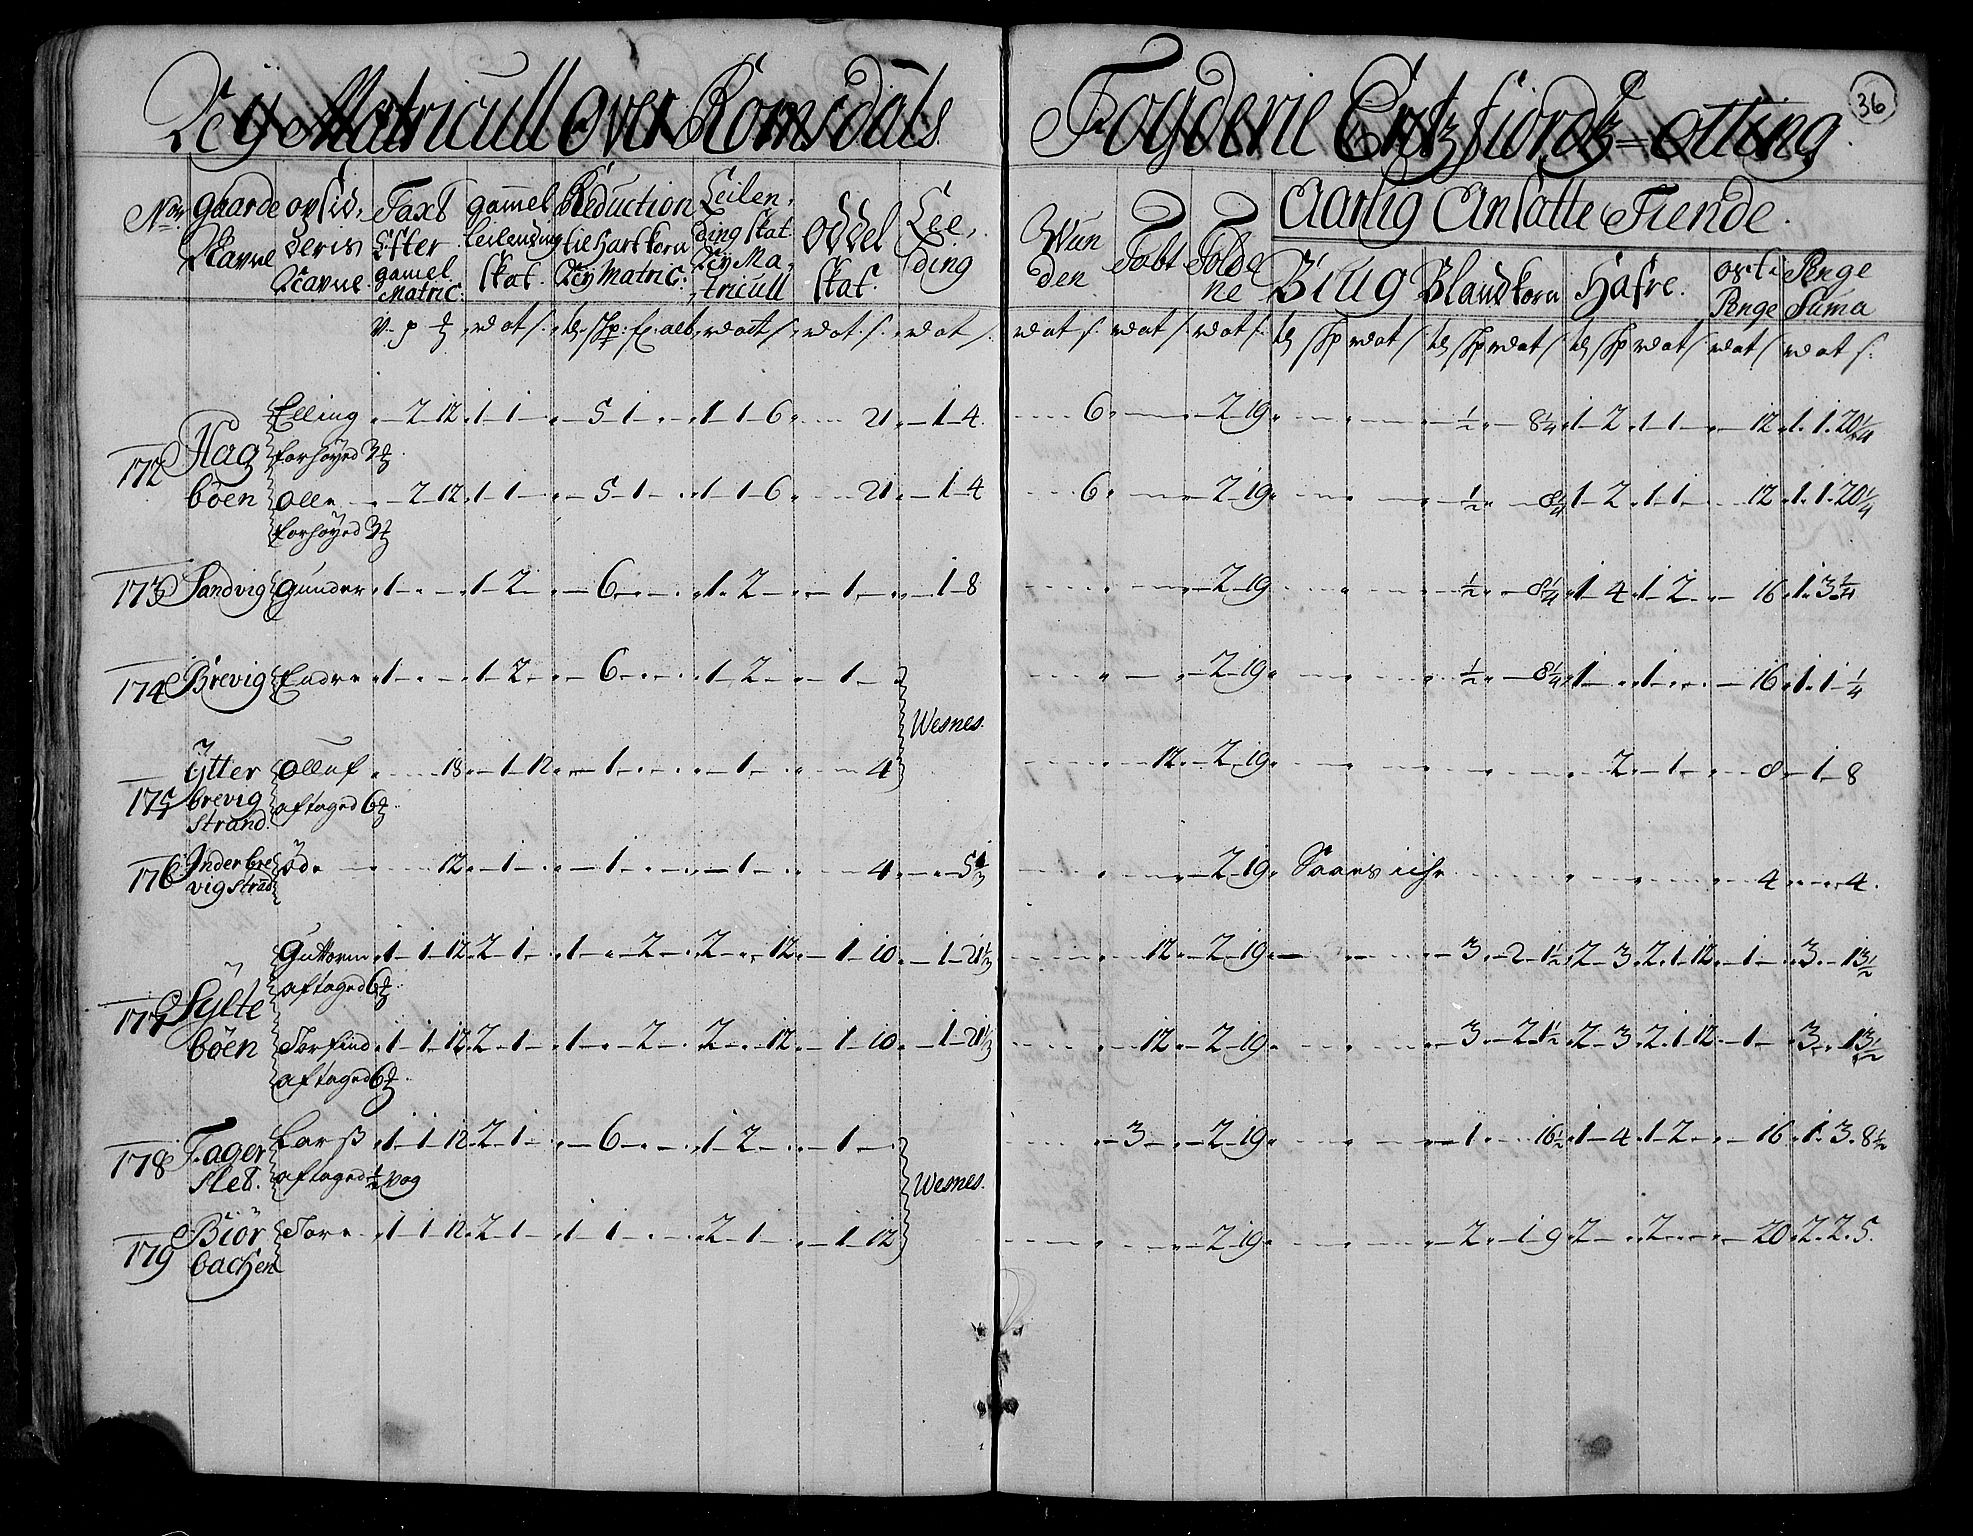 Ney Matricull over Romsdals Fogderie Eritzfiordz = otting.
36
No. gaarde Navne opsid, deris Navne Taxt Efter gamel Matric: gamel leilending skat. Reduction tie Hartkorn Ney Matric: Leilending skat Ney Matricull oddel skat. Leeding
Wunden Tobt Foldene Aarlig Ansatte Tiende.
Biug Blandkorn Hafre. Penge Penge Suma
172 Hagböen Elling 2-12 1-1 5-1 1-1-6 21 1-4 6 2-19 ½ 8¼ 1-2 1-1 12 1.1.20¼
forhöyed 3
Olle 2-12 1-1 5-1 1-1-6 21 1-4 6 2-19 ½ 8¼ 1-2 1-1 12 1.1.20¼
forhöyed 3
173 Sandvig gunder 1 1-2 6 1-2 1 1-8 2-19 ½ 8¼ 1-4 1-2 16 1.3¼
174 Brevig Endre 1 1-2 6 1-2 1 2-19 ½ 8¼ 1 1 16 1.1-¼
Wesnes.
175 Ytter brevig strand. Olluf 18 1-12 1 1 4 12 2-19 2 1 8 1-8
aftaged 6
176 Inder brevig strand öde 12 1 1 1 4 5⅓ 2-19 4 4.
177 Sylteböen Guttorm 1-1-12 2-1 1-2 2-12 1-10 1-21⅓ 12 2-19 3 2-1½ 2-3 2.1.12 1 3-13½
aftaged 6
Torfind 1-1-12 2-1 1-2 2-12 1-10 1-21⅓ 12 2-19 3 2-1½ 2-3 2.1.12 1 3-13½
aftaged 6
178 Fagerslet. Lars 1-1-12 2-1 6 1-2 1 3 2-19 1 16½ 1-4 1-2 16 1.3.8½
aftaged ½ vog
Wesnes.
179 Biörbachen Tore 1-1-12 2-1 1-1 2-1 1-12 2-19 2 1-9 2 2 20 2.2.5.